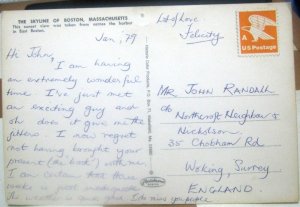 THE SKYLINE OF BOSTON, MASSACHUSETTS
This sunset view was taken from across the harbor
in East Boston.
Jan, 79
Hi John,
I am having
an extremely wonderful
time I've just met
an exciting guy and
he does it gave me the
jitters. I now regret
not having brought your
present (the book) with me
I am certain that three
weeks is just inadequate
the weather is
Lots of Love
Felicity
A
US Postage
MR JOHN RANDALL
c/o
Northcroft Neighbour &
Nicholson,
35 Chobham Rd
Woking, Surrey
ENGLAND